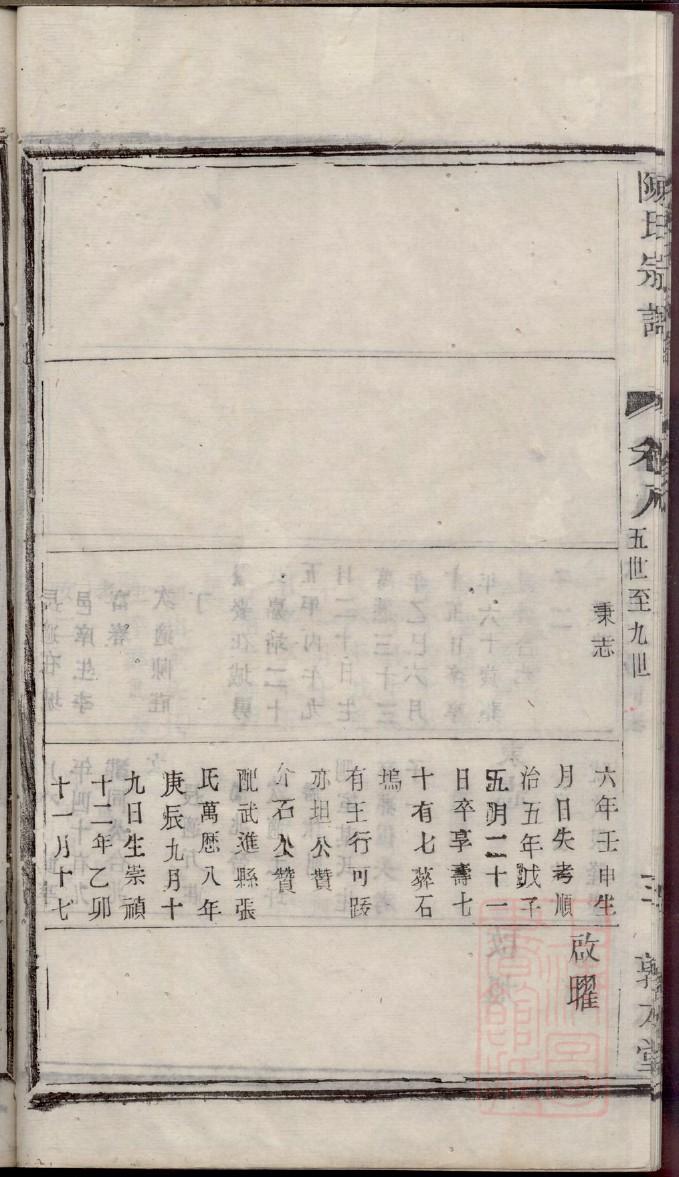 陳氏宗譜
卷八
五世至九世
三
敦本堂
秉志
六年壬申生
月日失考順
治五年戊子
五月二十一
日卒享壽七
十有七葬石
塢
有王行可跋
亦坦公贊
介石公贊
配武進縣張
氏萬厯八年
庚辰九月十
九日生崇禎
十二年乙卯
十一月十七
啟曜